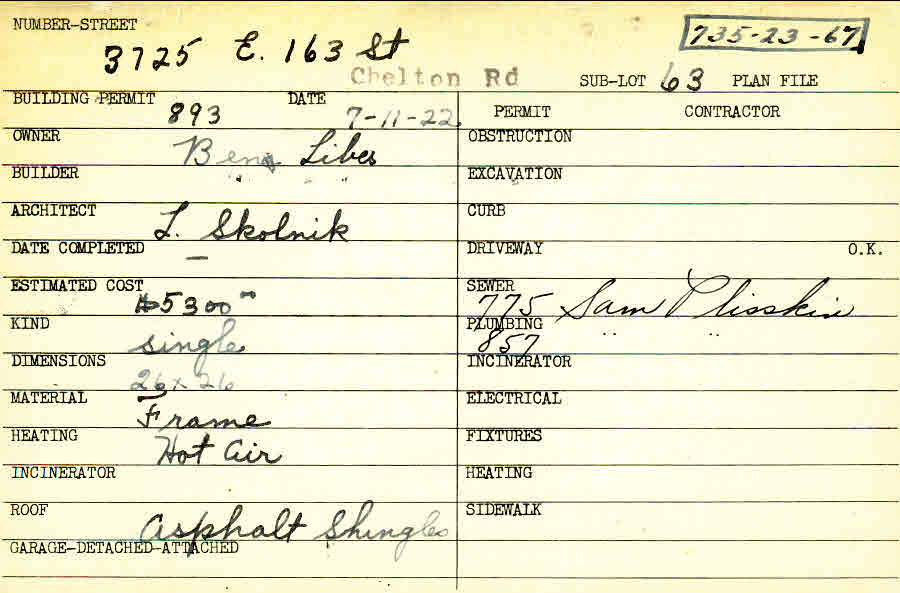 NUMBER-STREET 735-23-67
3725 E. 163 St
Chelton Rd SUB-LOT 63 PLAN FILE
BUILDING PERMIT 893 DATE 7-11-22 PERMIT CONTRACTOR
OWNER Libes OBSTRUCTION
BUILDER " " EXCAVATION
ARCHITECT L. Skolnik CURB
DATE COMPLETED — DRIVEWAY O.K.
ESTIMATED COST $5300 00 SEWER 775 Sam Plisskin
KIND single PLUMBING 857 " "
DIMENSIONS 26 x 26 INCINERATOR
MATERIAL Frame ELECTRICAL
HEATING Hot Air FIXTURES
INCINERATOR HEATING
ROOF Asphalt Shingles SIDEWALK
GARAGE-DETACHED-ATTACHED